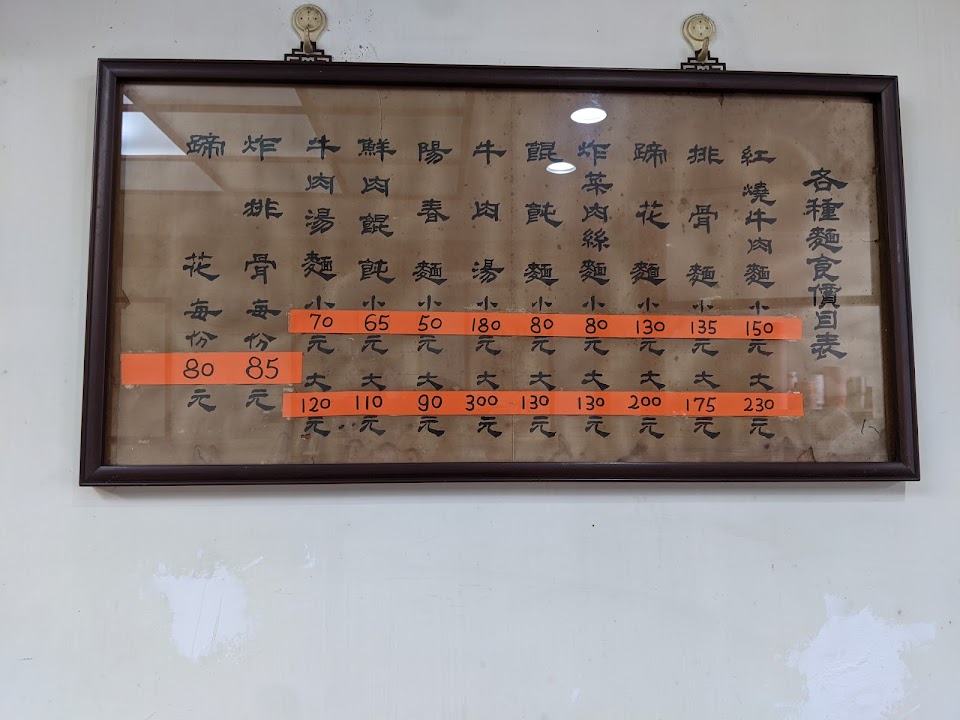 各種麵食價目表
紅燒牛肉麵小150元大230元
排骨麵小135元大175元
蹄花麵小130元大200元
炸菜肉絲麵小80元大130元
餛飩麵小80元大130元
牛肉湯小180元大300元
陽春麵小50元大90元
鮮肉餛飩小65元大110元
牛肉湯麵小70元大120元
炸排骨每份85元
蹄花每份80元